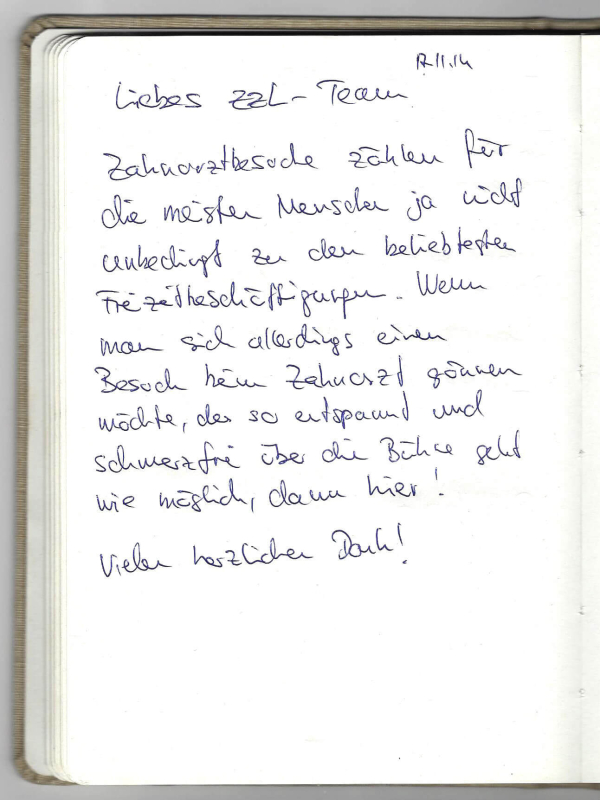 17.11.14
Liebes ZZL-Team
Zahnarztbesuche zählen für
die meisten Menschen ja nicht
unbedingt zu den beliebtesten
Freizeitbeschäftigungen. Wenn
man sich allerdings einen
Besuch beim Zahnarzt gönnen
möchte, der so entspannt und
schmerzfrei über die Bühne geht
wie möglich, dann hier!
Vielen herzlichen Dank!